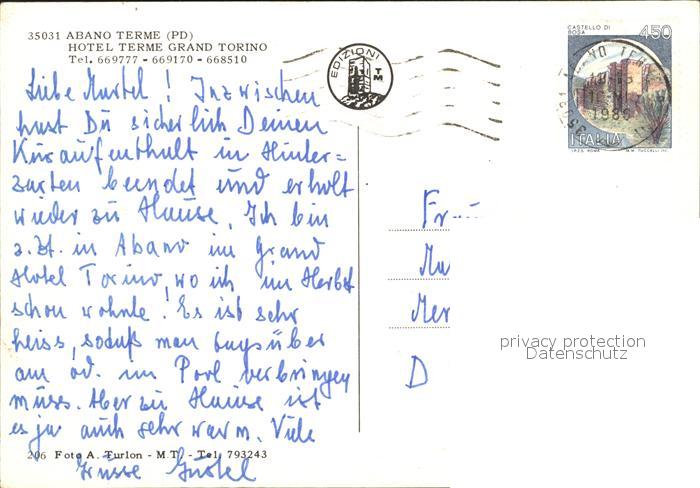 35031 ABANO TERME (PD)
HOTEL TERME GRAND TORINO
Tel. 669777 - 669170 - 668510
EDIZIONI
CASTELLO DI BOSA
450
ITALIA
I.P.Z.S. ROMA
Liebe Martel! Inzwischen
hast Du sicherlich Deinen
Kuraufenthalt in Hinter=
zarten beendet und erholt
wieder zu Hause. Ich bin
z.Zt. in Abano im Grand
Hotel Torino, wo ich im Herbst
schon wohnte! Es ist sehr
heiss, sodaß man tagsüber
am od. im Pool verbringen
muss. Aber zu Hause ist
es ja auch sehr warm. Viele
Grüsse Gustel
Fr
Ma
Mer
D
privacy protection
Datenschutz
206 Foto A. Turlon - M.T. - Tel. 793243